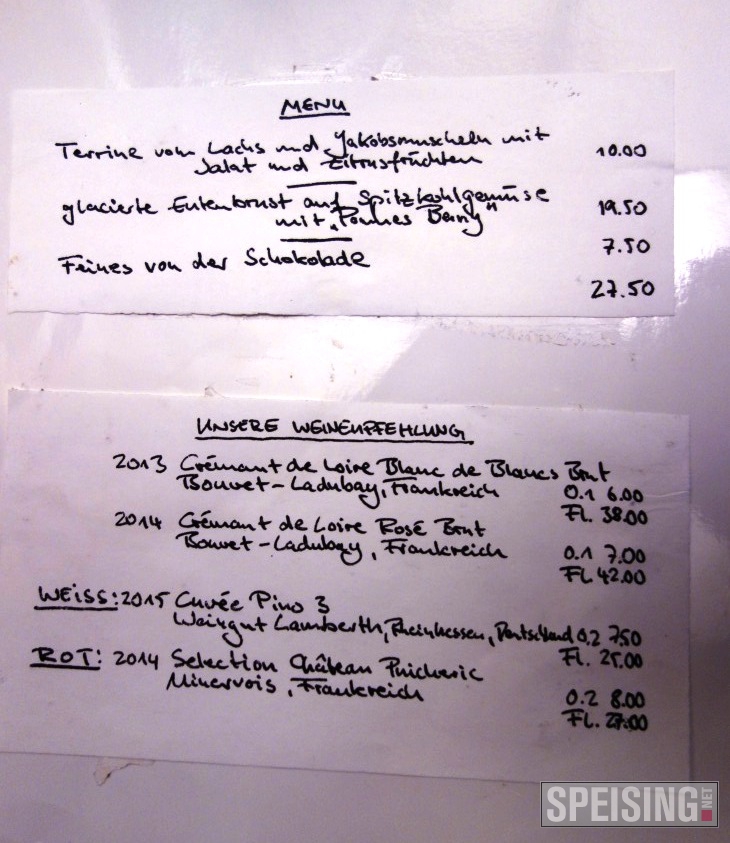 MENU
Terrine vom Lachs und Jakobsmuscheln mit
Salat und Zitrusfrüchten 10.00
glacierte Entenbrust auf Spitzkohlgemüse 19.50
mit „Pommes Berny"
Feines von der Schokolade 7.50
27.50
UNSERE WEINEMPFEHLUNG
2013 Crémant de Loire Blanc de Blancs Brut
Bouvet-Ladubay, Frankreich 0.1 6.00
Fl. 38.00
2014 Crémant de Loire Rosé Brut
Bouvet-Ladubay, Frankreich 0.1 7.00
Fl. 42.00
WEISS: 2015 Cuvée Pino 3
Weingut Lamberth, Rheinhessen, Deutschland 0.2 7.50
Fl. 25.00
ROT: 2014 Selection Château Puicheric
Minervois, Frankreich 0.2 8.00
Fl. 27.00
SPEISING.NET